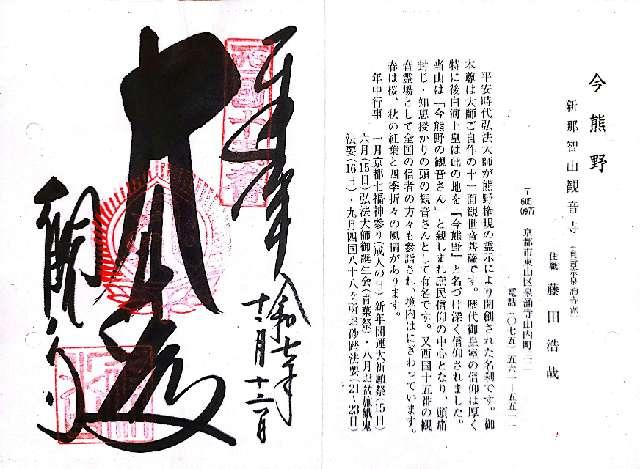 今熊野
新那智山観音寺
住職 藤田浩哉
〒605-0977 京都市東山区泉涌寺山内町三二
電話(〇七五)五六一-五五一一
平安時代弘法大師が熊野権現の霊示により開創された名刹です。御
本尊は大師ご自作の十一面観世音菩薩です。歴代御皇室の信仰は厚く
特に後白河上皇は此の地を「今熊野」と名づけ深く信仰されました。
当山は「今熊野の観音さん」と親しまれ庶民信仰の中心となり、頭痛
封じ・知恵授かりの頭の観音さんとして有名です。又西国十五番の観
音霊場として全国の信者の方々も参詣され、境内はにぎわっています。
春は桜、秋の紅葉と四季折々の風情があります。
年中行事 一月京都七福神参り(成人の日)新年開運大祈願祭(15日)
六月(15日)弘法大師御誕生会(青葉祭)・八月
法要(16日)・九月四国八十八ヶ所 法要(21〜23日)
奉拝
令和七年
十二月十二日
大悲殿
観音寺